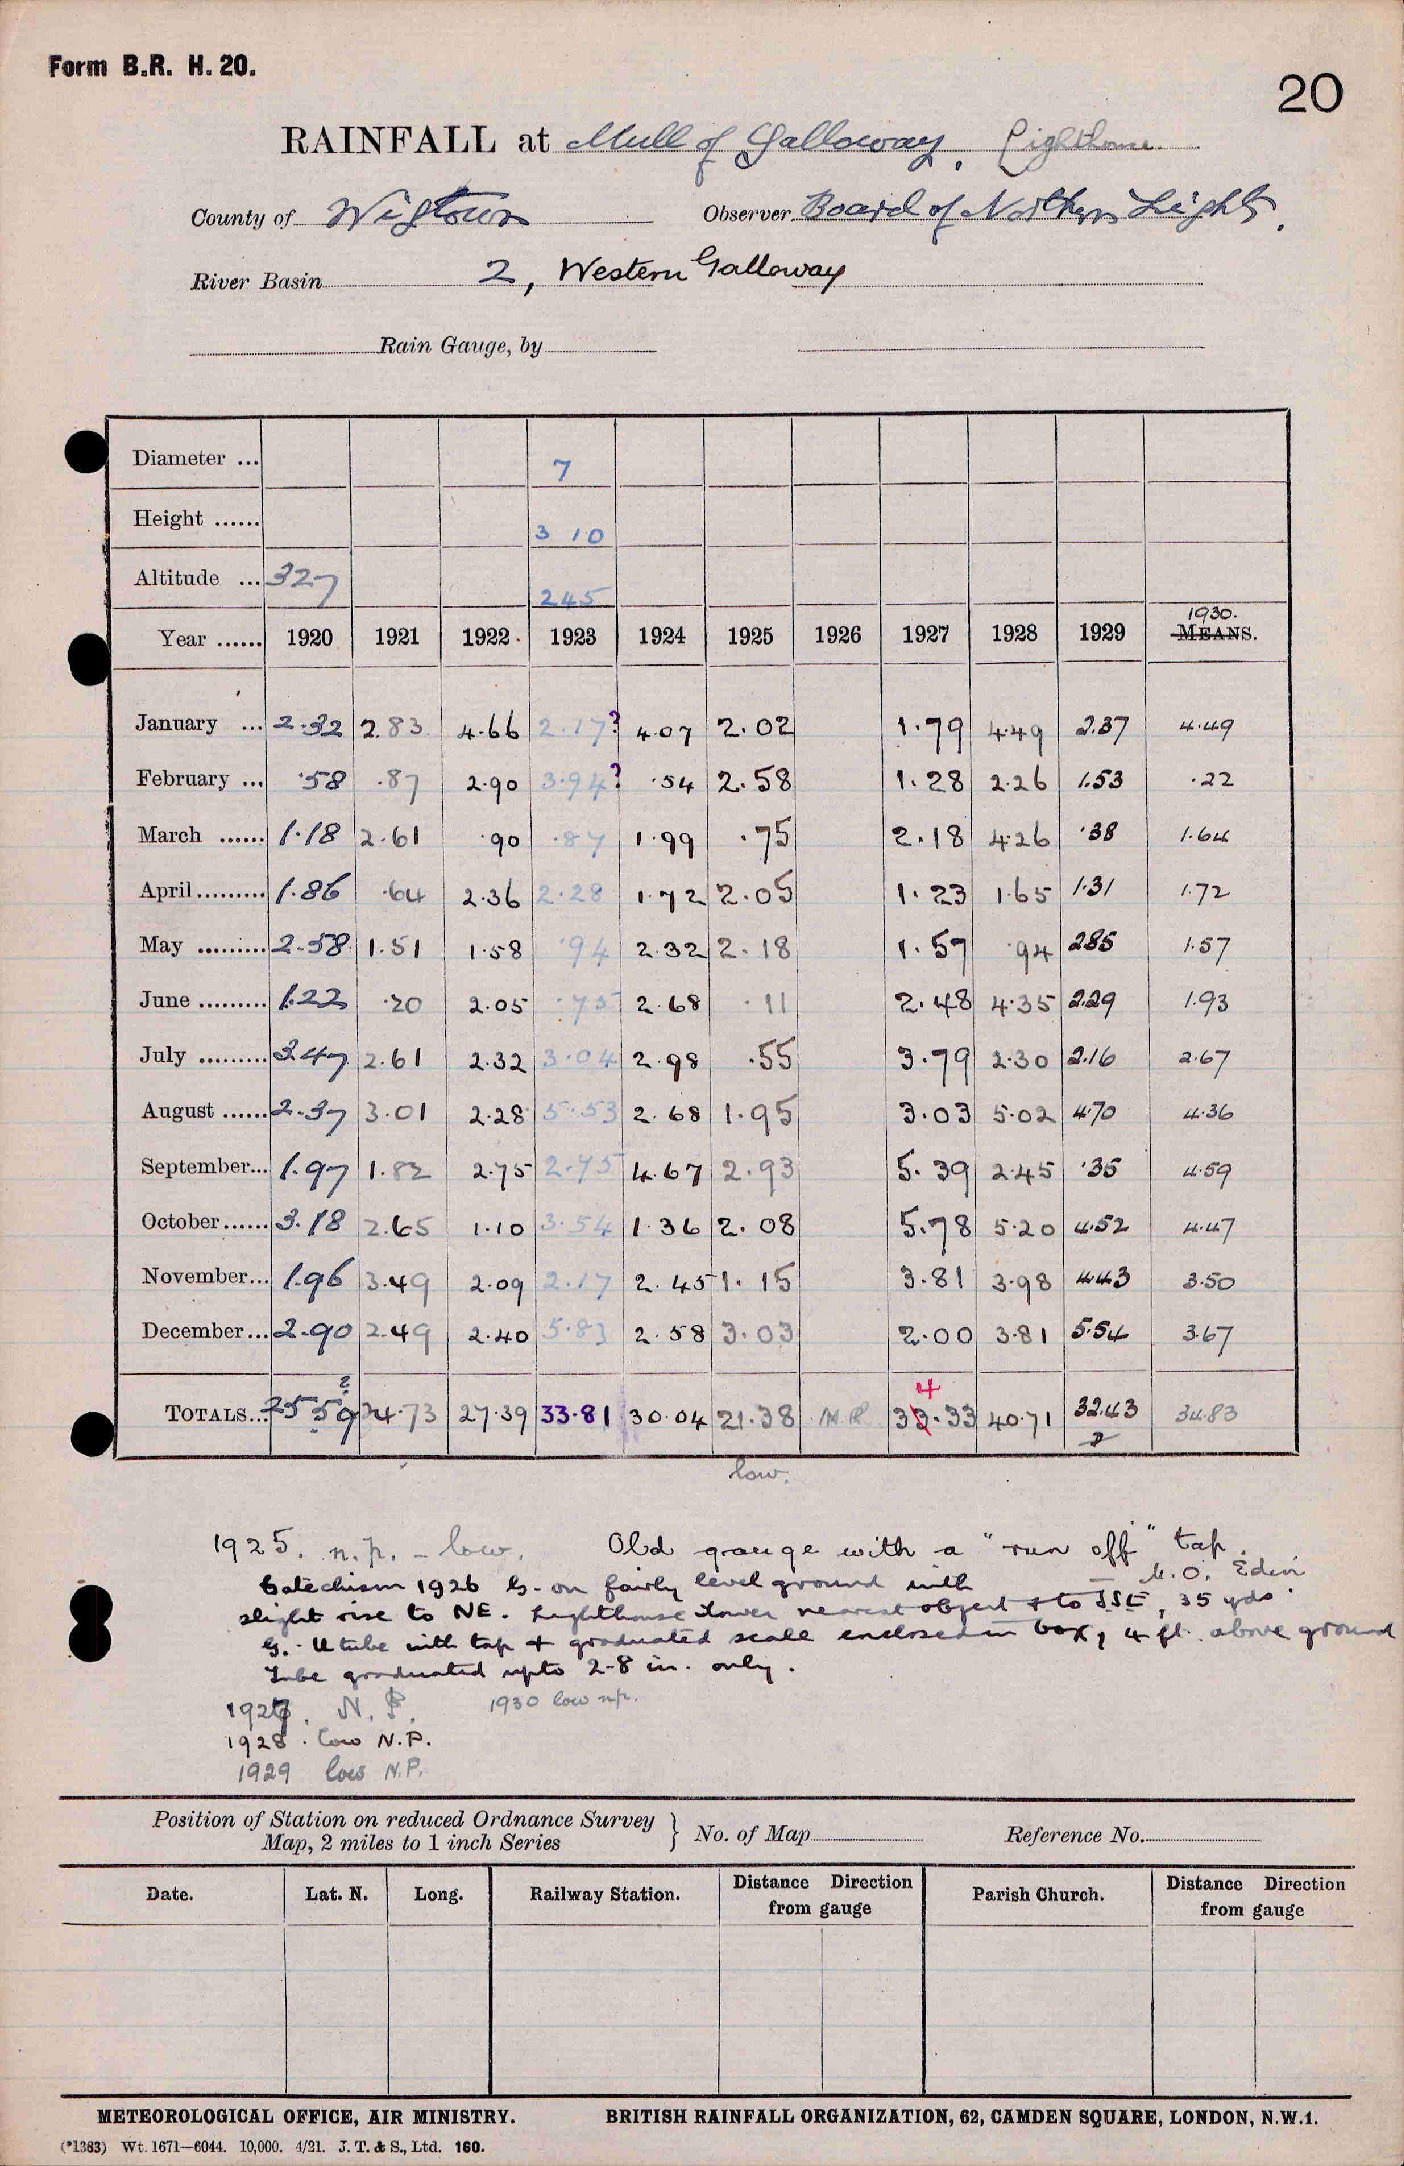 Form B.R. H. 20.
20
RAINFALL at Mull of Galloway, Lighthouse
County of Wigtown Observer Board of Northern Lights.
River Basin 2, Western Galloway
Rain Gauge, by
Diameter ... 7
Height ...... 3 10
Altitude ... 327 245
1930.
Year ...... 1920 1921 1922 1923 1924 1925 1926 1927 1928 1929 MEANS.
January ... 2.32 2.83 4.66 2.17? 4.07 2.02 1.79 4.49 2.37 4.49
February ... .58 .87 2.90 3.94? .54 2.58 1.28 2.26 1.53 .22
March ...... 1.18 2.61 .90 .87 1.99 .75 2.18 4.26 .38 1.64
April ......... 1.86 .64 2.36 2.28 1.72 2.05 1.23 1.65 1.31 1.72
May ......... 2.58 1.51 1.58 .94 2.32 2.18 1.57 .94 2.85 1.57
June ......... 1.22 .20 2.05 .75 2.68 .11 2.48 4.35 2.29 1.93
July ......... 3.47 2.61 2.32 3.04 2.98 .55 3.79 2.30 2.16 2.67
August ...... 2.37 3.01 2.28 5.53 2.68 1.95 3.03 5.02 4.70 4.36
September... 1.97 1.82 2.75 2.75 4.67 2.93 5.39 2.45 .35 4.59
October ...... 3.18 2.65 1.10 3.54 1.36 2.08 5.78 5.20 4.52 4.47
November... 1.96 3.49 2.09 2.17 2.45 1.15 3.81 3.98 4.43 3.50
December ... 2.90 2.49 2.40 5.83 2.58 3.03 2.00 3.81 5.54 3.67
? 4
TOTALS... 25.59 24.73 27.39 33.81 30.04 21.38 N.R. 33.33 40.71 32.43 34.83
low.
1925. n.p. - low. Old gauge with a "run off" tap.
— M.O. Edin.
Catechism 1926 G. on fairly level ground with
slight rise to NE. Lighthouse tower nearest object & to SSE, 35 yds
G. - U tube with tap & graduated scale enclosed in box, 4 ft. above ground
Tube graduated up to 2.8 in. only.
1927. N.P. 1930 low n.p.
1928. Low N.P.
1929 low N.P.
Position of Station on reduced Ordnance Survey
Map, 2 miles to 1 inch Series } No. of Map Reference No.
Date. Lat. N. Long. Railway Station. Distance Direction from gauge Parish Church. Distance Direction from gauge
METEOROLOGICAL OFFICE, AIR MINISTRY. BRITISH RAINFALL ORGANIZATION, 62, CAMDEN SQUARE, LONDON, N.W.1.
(*1383) Wt. 1671—6044. 10,000. 4/21. J. T. & S., Ltd. 160.